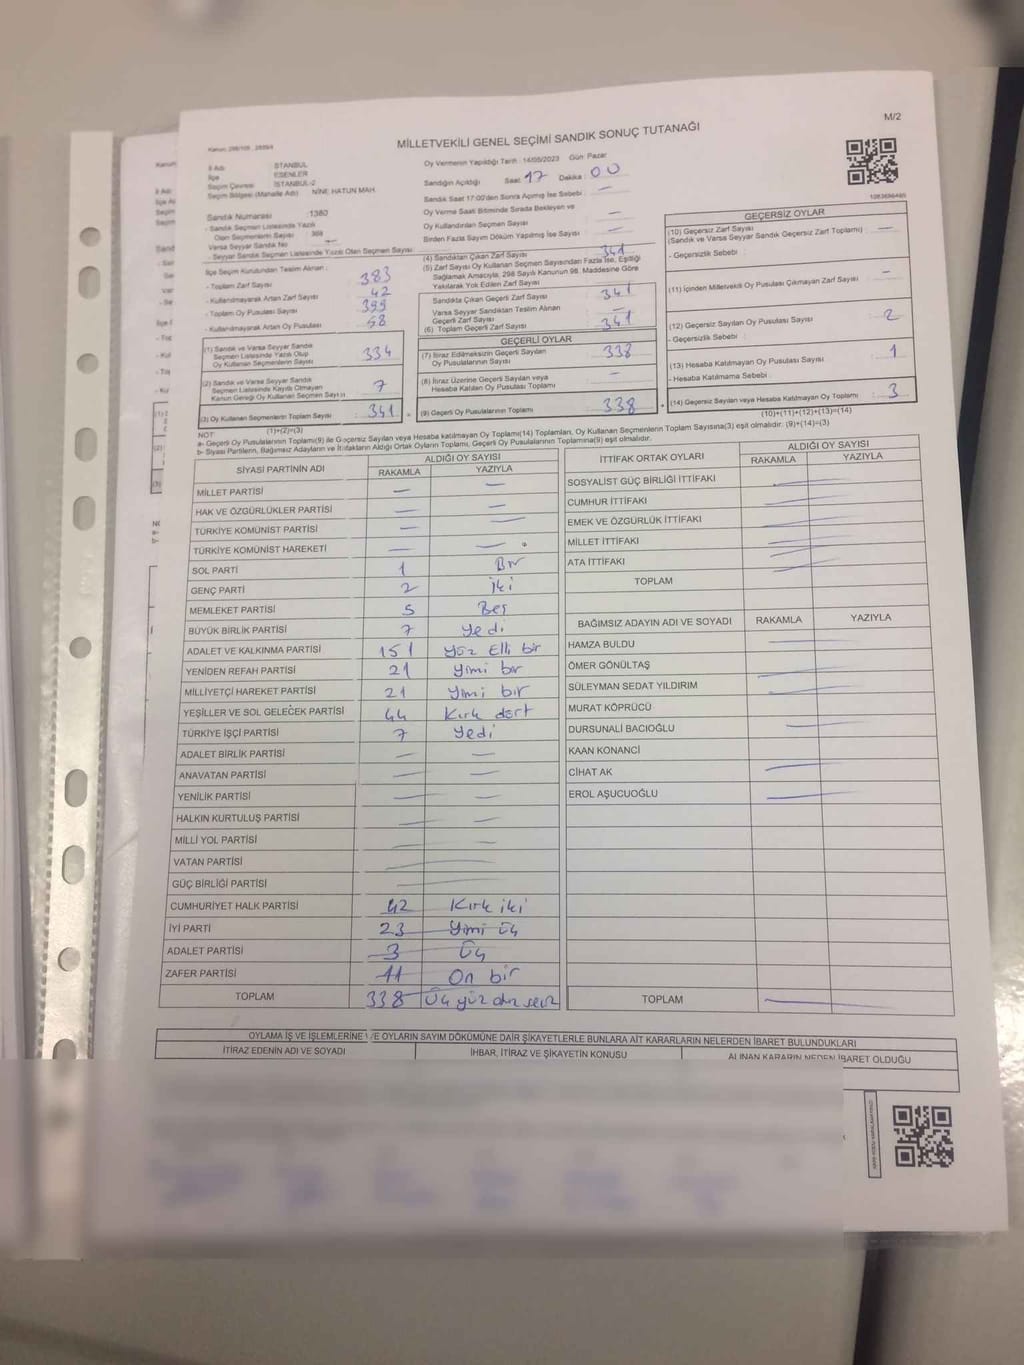 M/2
MİLLETVEKİLİ GENEL SEÇİMİ SANDIK SONUÇ TUTANAĞI
Kanun: 298/105 , 2839/4
İl Adı İSTANBUL
İlçe ESENLER
Seçim Çevresi İSTANBUL-2
Seçim Bölgesi (Mahalle Adı) NİNE HATUN MAH.
Sandık Numarası :1380
- Sandık Seçmen Listesinde Yazılı
Olan Seçmenlerin Sayısı 368
Varsa Seyyar Sandık No
- Seyyar Sandık Seçmen Listesinde Yazılı Olan Seçmen Sayısı
Oy Vermenin Yapıldığı Tarih : 14/05/2023 Gün: Pazar
Sandığın Açıldığı Saat: 17 Dakika: 00
Sandık Saat 17:00'den Sonra Açılmış İse Sebebi : —
Oy Verme Saati Bitiminde Sırada Bekleyen ve
Oy Kullandırılan Seçmen Sayısı : —
Birden Fazla Sayım Döküm Yapılmış İse Sayısı : —
İlçe Seçim Kurulundan Teslim Alınan :
- Toplam Zarf Sayısı : 383
- Kullanılmayarak Artan Zarf Sayısı : 42
- Toplam Oy Pusulası Sayısı : 399
- Kullanılmayarak Artan Oy Pusulası : 58
(1) Sandık ve Varsa Seyyar Sandık
Seçmen Listesinde Yazılı Olup
Oy Kullanan Seçmenlerin Sayısı : 334
(2) Sandık ve Varsa Seyyar Sandık
Seçmen Listesinde Kayıtlı Olmayan
Kanun Gereği Oy Kullanan Seçmen Sayısı : 7
(3) Oy Kullanan Seçmenlerin Toplam Sayısı : 341
(1)+(2)=(3)
(4) Sandıktan Çıkan Zarf Sayısı : 341
(5) Zarf Sayısı Oy Kullanan Seçmen Sayısından Fazla İse, Eşitliği
Sağlamak Amacıyla, 298 Sayılı Kanunun 98. Maddesine Göre
Yakılarak Yok Edilen Zarf Sayısı :
Sandıkta Çıkan Geçerli Zarf Sayısı : 341
Varsa Seyyar Sandıktan Teslim Alınan
Geçerli Zarf Sayısı : —
(6) Toplam Geçerli Zarf Sayısı : 341
GEÇERLİ OYLAR
(7) İtiraz Edilmeksizin Geçerli Sayılan
Oy Pusulalarının Sayısı : 338
(8) İtiraz Üzerine Geçerli Sayılan veya
Hesaba Katılan Oy Pusulası Toplamı : —
(9) Geçerli Oy Pusulalarının Toplamı : 338
1083686485
GEÇERSİZ OYLAR
(10) Geçersiz Zarf Sayısı : —
(Sandık ve Varsa Seyyar Sandık Geçersiz Zarf Toplamı)
- Geçersizlik Sebebi :
(11) İçinden Milletvekili Oy Pusulası Çıkmayan Zarf Sayısı : —
(12) Geçersiz Sayılan Oy Pusulası Sayısı : 2
- Geçersizlik Sebebi :
(13) Hesaba Katılmayan Oy Pusulası Sayısı : 1
- Hesaba Katılmama Sebebi :
(14) Geçersiz Sayılan veya Hesaba Katılmayan Oy Toplamı : 3
(10)+(11)+(12)+(13)=(14)
NOT
a- Geçerli Oy Pusulalarının Toplamı(9) ile Geçersiz Sayılan veya Hesaba katılmayan Oy Toplamı(14) Toplamları, Oy Kullanan Seçmenlerin Toplam Sayısına(3) eşit olmalıdır. (9)+(14)=(3)
b- Siyasi Partilerin, Bağımsız Adayların ve İttifakların Aldığı Ortak Oyların Toplamı, Geçerli Oy Pusulalarının Toplamına(9) eşit olmalıdır.
SİYASİ PARTİNİN ADI ALDIĞI OY SAYISI
RAKAMLA YAZIYLA
MİLLET PARTİSİ — —
HAK VE ÖZGÜRLÜKLER PARTİSİ — —
TÜRKİYE KOMÜNİST PARTİSİ — —
TÜRKİYE KOMÜNİST HAREKETİ — —
SOL PARTİ 1 Bir
GENÇ PARTİ 2 İki
MEMLEKET PARTİSİ 5 Beş
BÜYÜK BİRLİK PARTİSİ 7 Yedi
ADALET VE KALKINMA PARTİSİ 151 Yüz Elli bir
YENİDEN REFAH PARTİSİ 21 Yimi bir
MİLLİYETÇİ HAREKET PARTİSİ 21 Yimi bir
YEŞİLLER VE SOL GELECEK PARTİSİ 44 Kırk dört
TÜRKİYE İŞÇİ PARTİSİ 7 Yedi
ADALET BİRLİK PARTİSİ — —
ANAVATAN PARTİSİ — —
YENİLİK PARTİSİ — —
HALKIN KURTULUŞ PARTİSİ — —
MİLLİ YOL PARTİSİ — —
VATAN PARTİSİ —
GÜÇ BİRLİĞİ PARTİSİ —
CUMHURİYET HALK PARTİSİ 42 Kırk iki
İYİ PARTİ 23 Yimi üç
ADALET PARTİSİ 3 Üç
ZAFER PARTİSİ 11 On bir
TOPLAM 338 Üç yüz otuz sekiz
İTTİFAK ORTAK OYLARI ALDIĞI OY SAYISI
RAKAMLA YAZIYLA
SOSYALİST GÜÇ BİRLİĞİ İTTİFAKI —
CUMHUR İTTİFAKI —
EMEK VE ÖZGÜRLÜK İTTİFAKI —
MİLLET İTTİFAKI —
ATA İTTİFAKI —
TOPLAM
BAĞIMSIZ ADAYIN ADI VE SOYADI RAKAMLA YAZIYLA
HAMZA BULDU —
ÖMER GÖNÜLTAŞ —
SÜLEYMAN SEDAT YILDIRIM —
MURAT KÖPRÜCÜ
DURSUNALİ BACIOĞLU —
KAAN KONANCİ
CİHAT AK —
EROL AŞUCUOĞLU —
TOPLAM —
OYLAMA İŞ VE İŞLEMLERİNE VE OYLARIN SAYIM DÖKÜMÜNE DAİR ŞİKAYETLERLE BUNLARA AİT KARARLARIN NELERDEN İBARET BULUNDUKLARI
İTİRAZ EDENİN ADI VE SOYADI İHBAR, İTİRAZ VE ŞİKAYETİN KONUSU ALINAN KARARIN NEDEN İBARET OLDUĞU